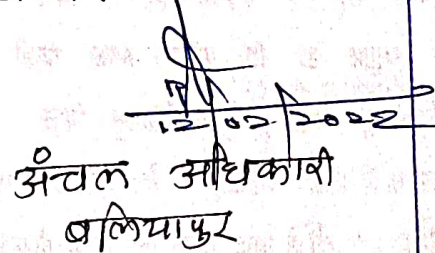 12/02/2022
अंचल अधिकारी
बलियापुर